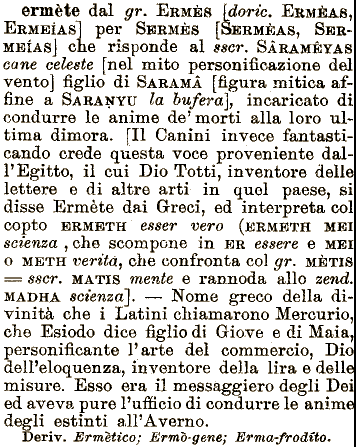 ermète dal gr. Ermès [doric. Ermèas,
Ermeías] per Sermès [Sermèas, Ser-
meías] che risponde al sscr. Sârameyas
cane celeste [nel mito personificazione del
vento] figlio di Saramâ [figura mitica af-
fine a Saraṇyu la bufera], incaricato di
condurre le anime de' morti alla loro ul-
tima dimora. [Il Canini invece fantasti-
cando crede questa voce proveniente dal-
l'Egitto, il cui Dio Totti, inventore delle
lettere e di altre arti in quel paese, si
disse Ermète dai Greci, ed interpreta col
copto ermeth esser vero (ermeth mei
scienza, che scompone in er essere e mei
o meth verità, che confronta col gr. mètis
= sscr. matis mente e rannoda allo zend.
madha scienza]. — Nome greco della di-
vinità che i Latini chiamarono Mercurio,
che Esiodo dice figlio di Giove e di Maia,
personificante l'arte del commercio, Dio
dell'eloquenza, inventore della lira e delle
misure. Esso era il messaggiero degli Dei
ed aveva pure l'ufficio di condurre le anime
degli estinti all'Averno.
Deriv. Ermètico; Ermò-gene; Erma-frodíto.